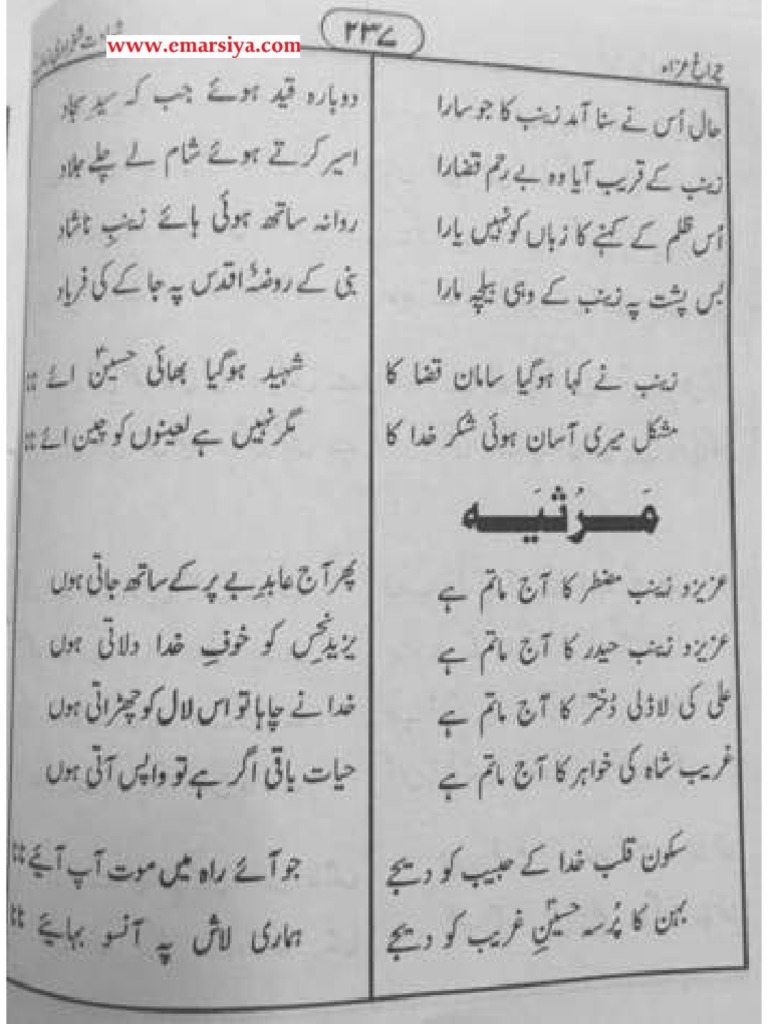 چراغِ عزاء
۲۳۷
www.emarsiya.com
حال اُس نے سنا آمد زینب کا جو سارا
زینب کے قریب آیا وہ بے رحم قضارا
اُس ظلم کے کہنے کا زباں کو نہیں یارا
بس پشت پہ زینب کے وہی بیلچہ مارا
زینب نے کہا ہوگیا سامان قضا کا
مشکل میری آسان ہوئی شکر خدا کا
مَرثیَہ
عزیزو زینب مضطر کا آج ماتم ہے
عزیزو زینب حیدر کا آج ماتم ہے
علی کی لاڈلی دُختر کا آج ماتم ہے
غریب شاہ کی خواہر کا آج ماتم ہے
سکون قلب خدا کے حبیب کو دیجے
بہن کا پُرسہ حسینؑ غریب کو دیجے
دوبارہ قید ہوئے جب کہ سیدِ سجاد
اسیر کرتے ہوئے شام لے چلے جلاد
روانہ ساتھ ہوئی ہائے زینبِ ناشاد
نبی کے روضۂ اقدس پہ جا کے کی فریاد
شہید ہوگیا بھائی حسینؑ ائے نانا
مگر نہیں ہے لعینوں کو چین ائے نانا
پھر آج عابدِ بے پر کے ساتھ جاتی ہوں
یزیدِ نجس کو خوفِ خدا دلاتی ہوں
خدا نے چاہا تو اس لال کو چھڑاتی ہوں
حیات باقی اگر ہے تو واپس آتی ہوں
جو آئے راہ میں موت آپ آیئے نانا
ہماری لاش پہ آنسو بہایئے نانا